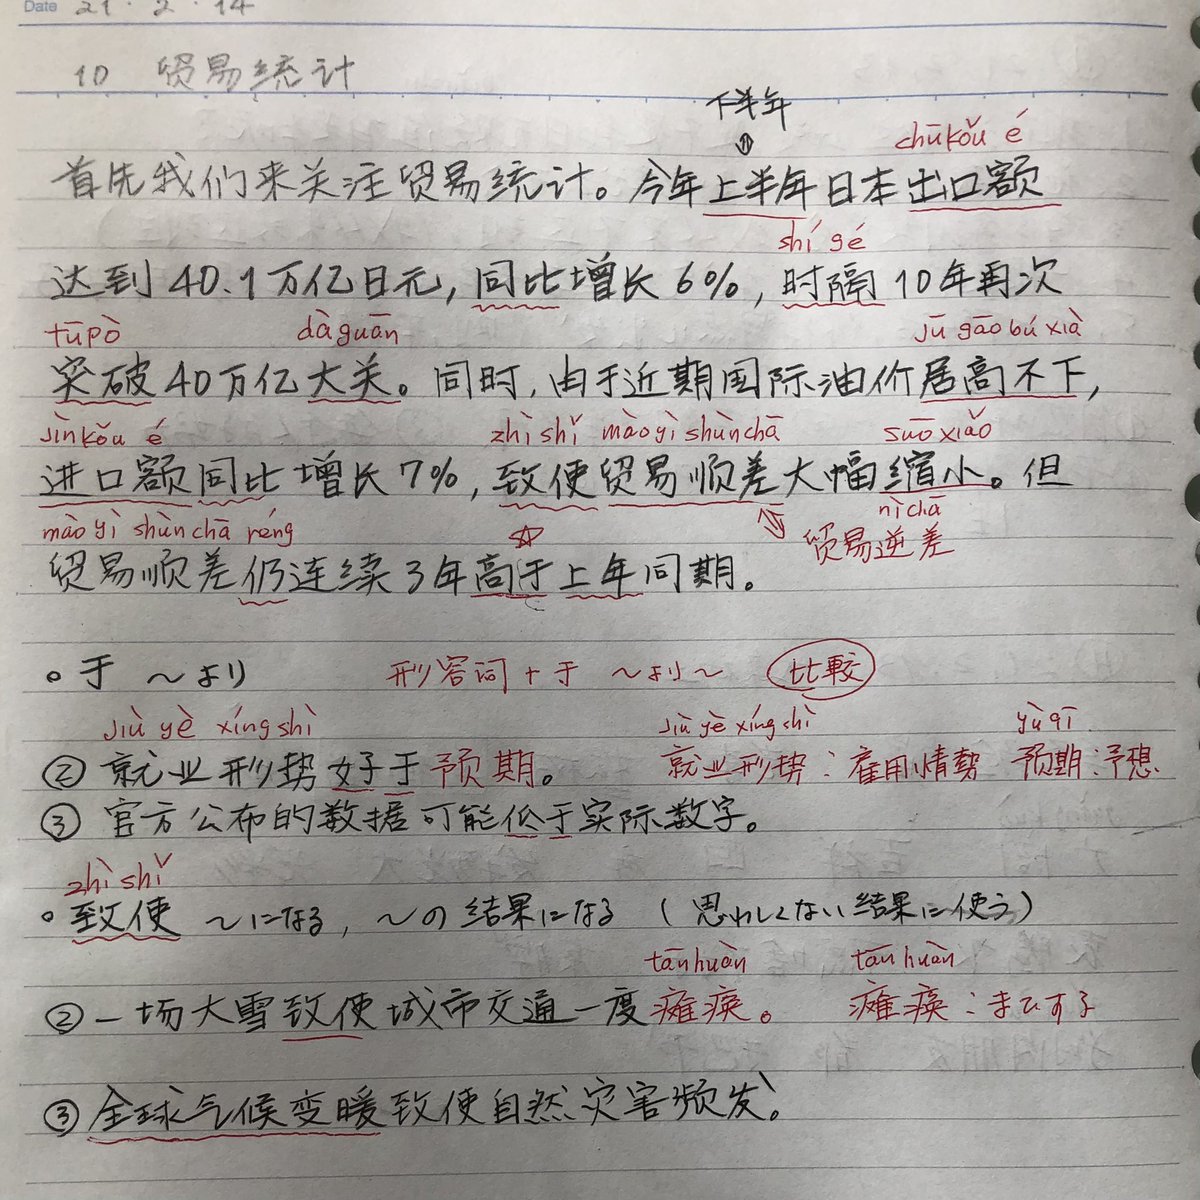 Date 21・2・14
10 贸易统计
下半年
chūkǒu é
首先我们来关注贸易统计。今年上半年日本出口额
shí gé
达到40.1万亿日元，同比增长6%，时隔10年再次
tūpò dàguān jū gāo bú xià
突破40万亿大关。同时，由于近期国际油价居高不下，
jìnkǒu é zhì shǐ mào yì shùn chā suō xiǎo
进口额同比增长7%，致使贸易顺差大幅缩小。但
mào yì shùn chā réng nì chā
贸易逆差
贸易顺差仍连续3年高于上年同期。
○于 〜より 形容词+于 〜より〜 比較
jiù yè xíng shì jiù yè xíng shì yù qī
② 就业形势好于预期。 就业形势：雇用情勢 预期：予想
③ 官方公布的数据可能低于实际数字。
zhì shǐ
○致使 〜になる，〜の結果になる（思わしくない結果に使う）
tān huàn tān huàn
② 一场大雪致使城市交通一度瘫痪。 瘫痪：まひする
③ 全球气候变暖致使自然灾害频发。